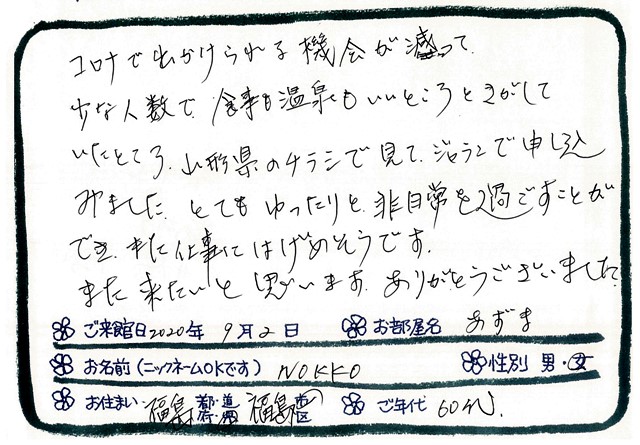 コロナで出かけられる機会が減って、
少な人数で、食事も温泉もいいところとさがして
いたところ、山形県のチラシで見て、ジャランで申し込
みました。とてもゆったりと、非日常を過ごすことが
でき、また仕事にはげめそうです。
また来たいと思います。ありがとうございました。
ご来館日 2020年 9月2日 お部屋名 あずま
お名前(ニックネームOKです) NOKKO 性別 男・女
お住まい 福島 都・道・府・県 福島 市 区 ご年代 60代.